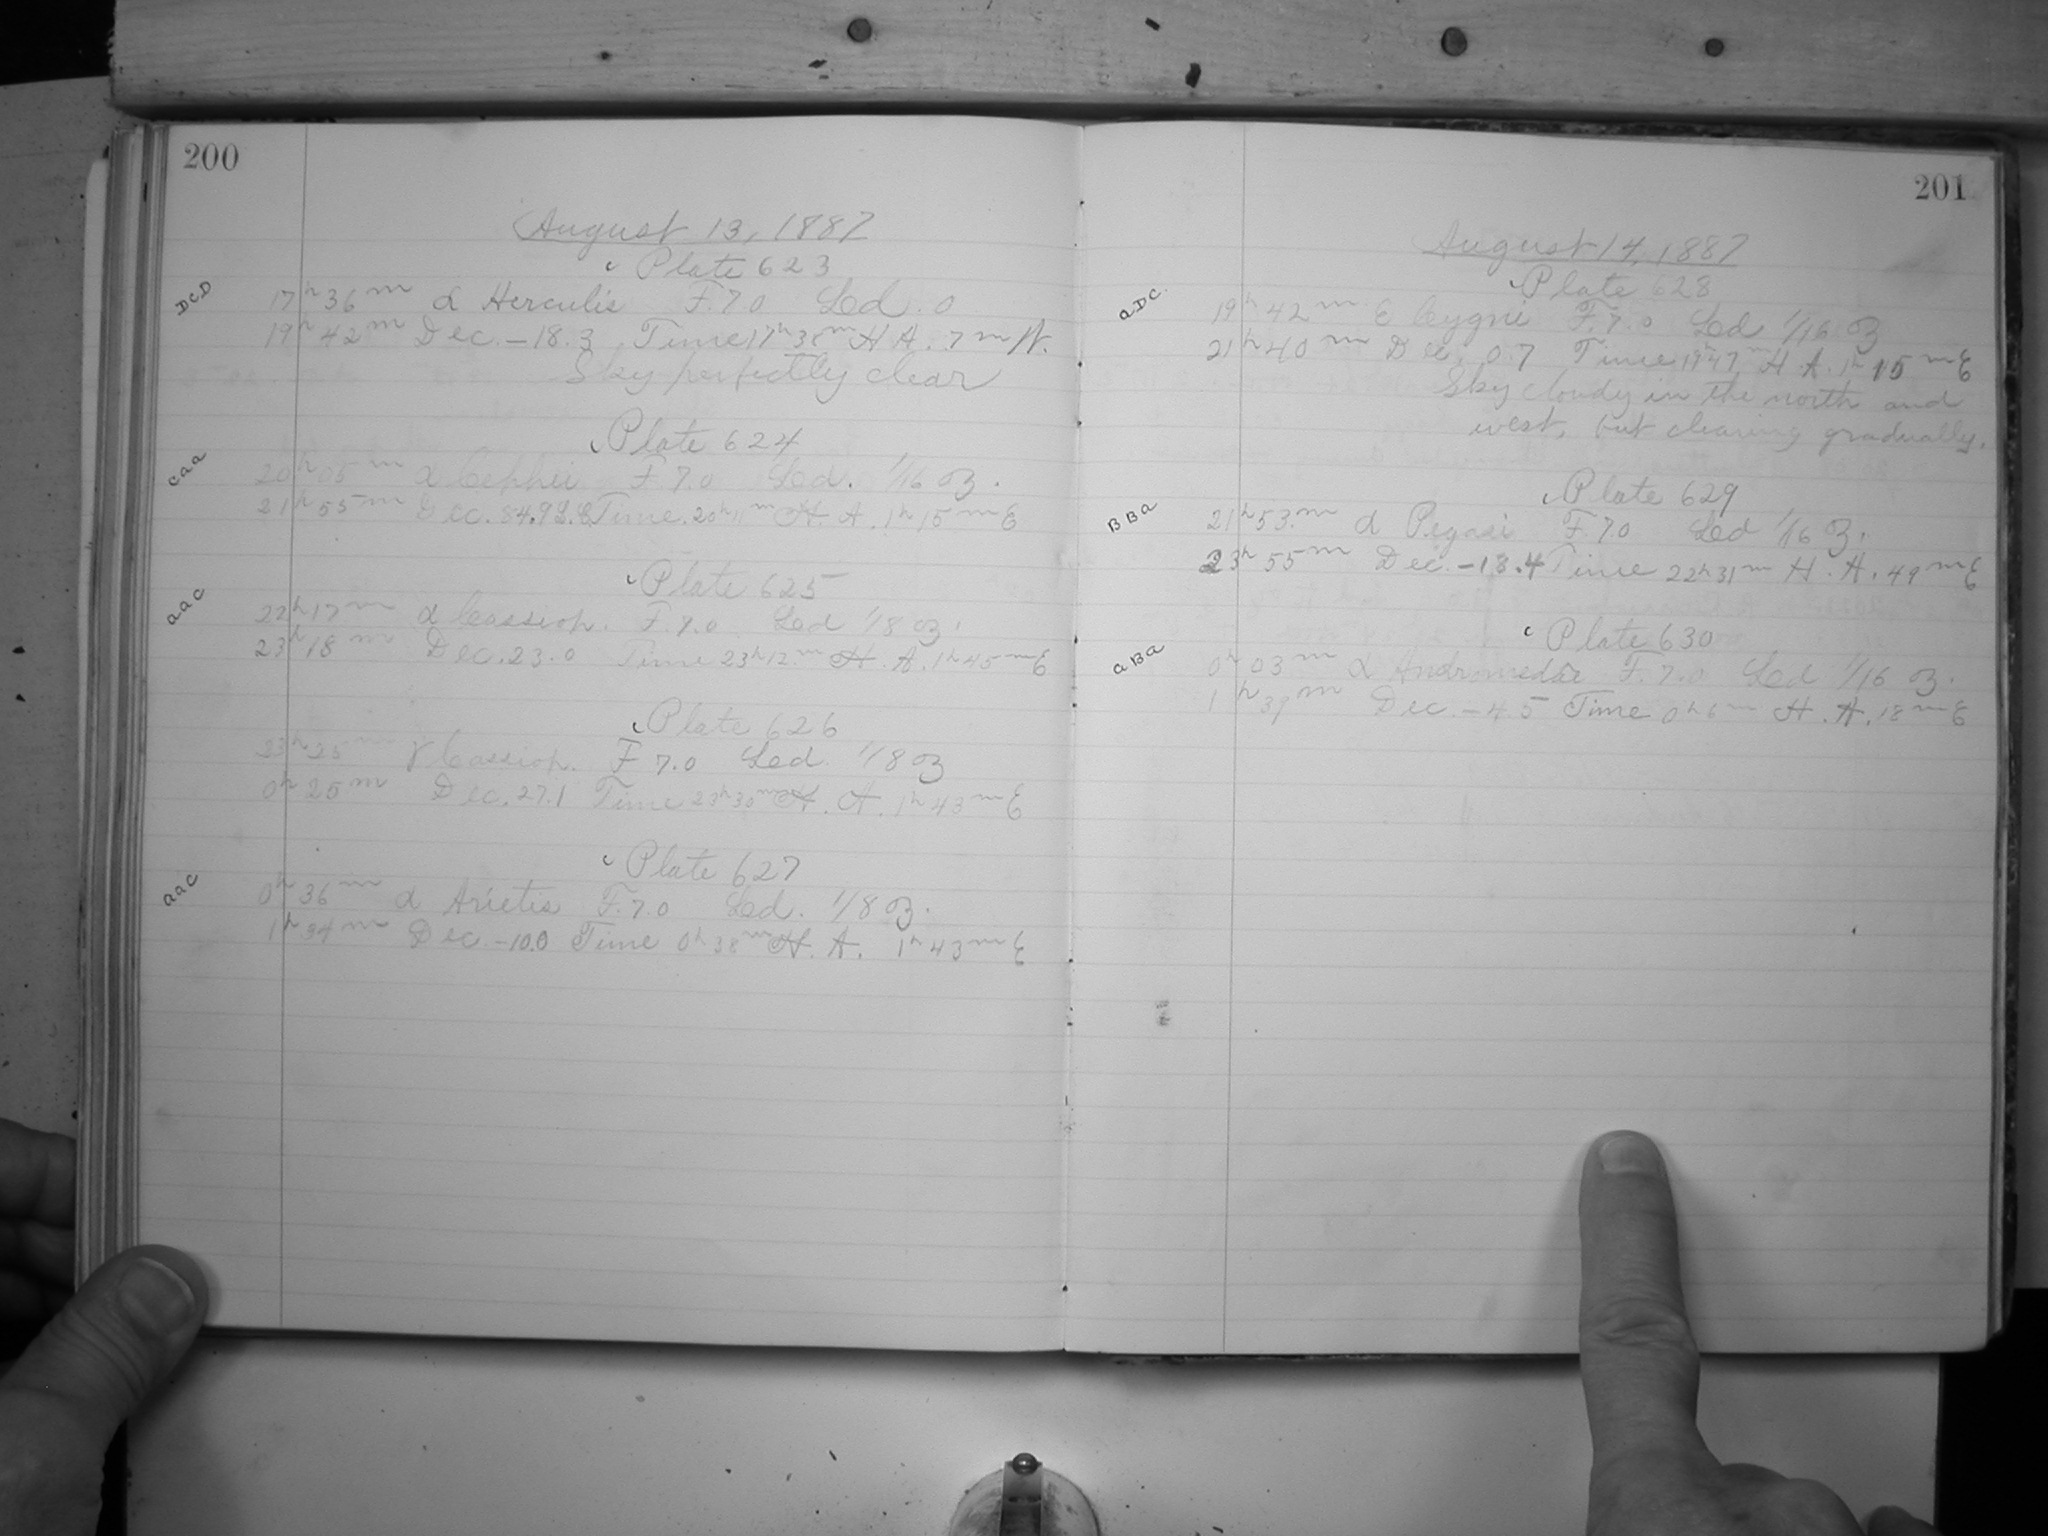 200
August 13, 1887
Plate 623
DCD
17h 36m α Herculis F. 7.0 Led. 0
19h 42m Dec. -18.3 Time 17h 38m H A. 7m W.
Sky perfectly clear
Plate 624
caa
20h 05m α Cephei F. 7.0 Led. 1/16 oz.
21h 55m Dec. 84.9 Time. 20h 11m H. A. 1h 15m E
Plate 625
aac
22h 17m α Cassiop. F. 7.0 Led 1/8 oz.
23h 18m Dec. 23.0 Time 23h 12m H. A. 1h 45m E
Plate 626
23h 25m γ Cassiop. F 7.0 Led. 1/8 oz
0h 25m Dec. 27.1 Time 23h 30m H. A. 1h 43m E
Plate 627
aac
0h 36m α Arietis F. 7.0 Led. 1/8 oz.
1h 34m Dec. -10.0 Time 0h 38m H. A. 1h 43m E
201
August 14, 1887
Plate 628
aDC.
19h 42m ε Cygni F. 7.0 Led 1/16 oz
21h 40m Dec. 0.7 Time 19h 47m H. A. 1h 15m E
Sky cloudy in the north and
west, but clearing gradually.
Plate 629
BBa
21h 53m α Pegasi F. 7.0 Led 1/16 oz.
23h 55m Dec. -18.4 Time 22h 31m H. A. 49m E
Plate 630
aBa
0h 03m α Andromedæ F. 7.0 Led 1/16 oz.
1h 39m Dec. -4.5 Time 0h 6m H. A. 18m E